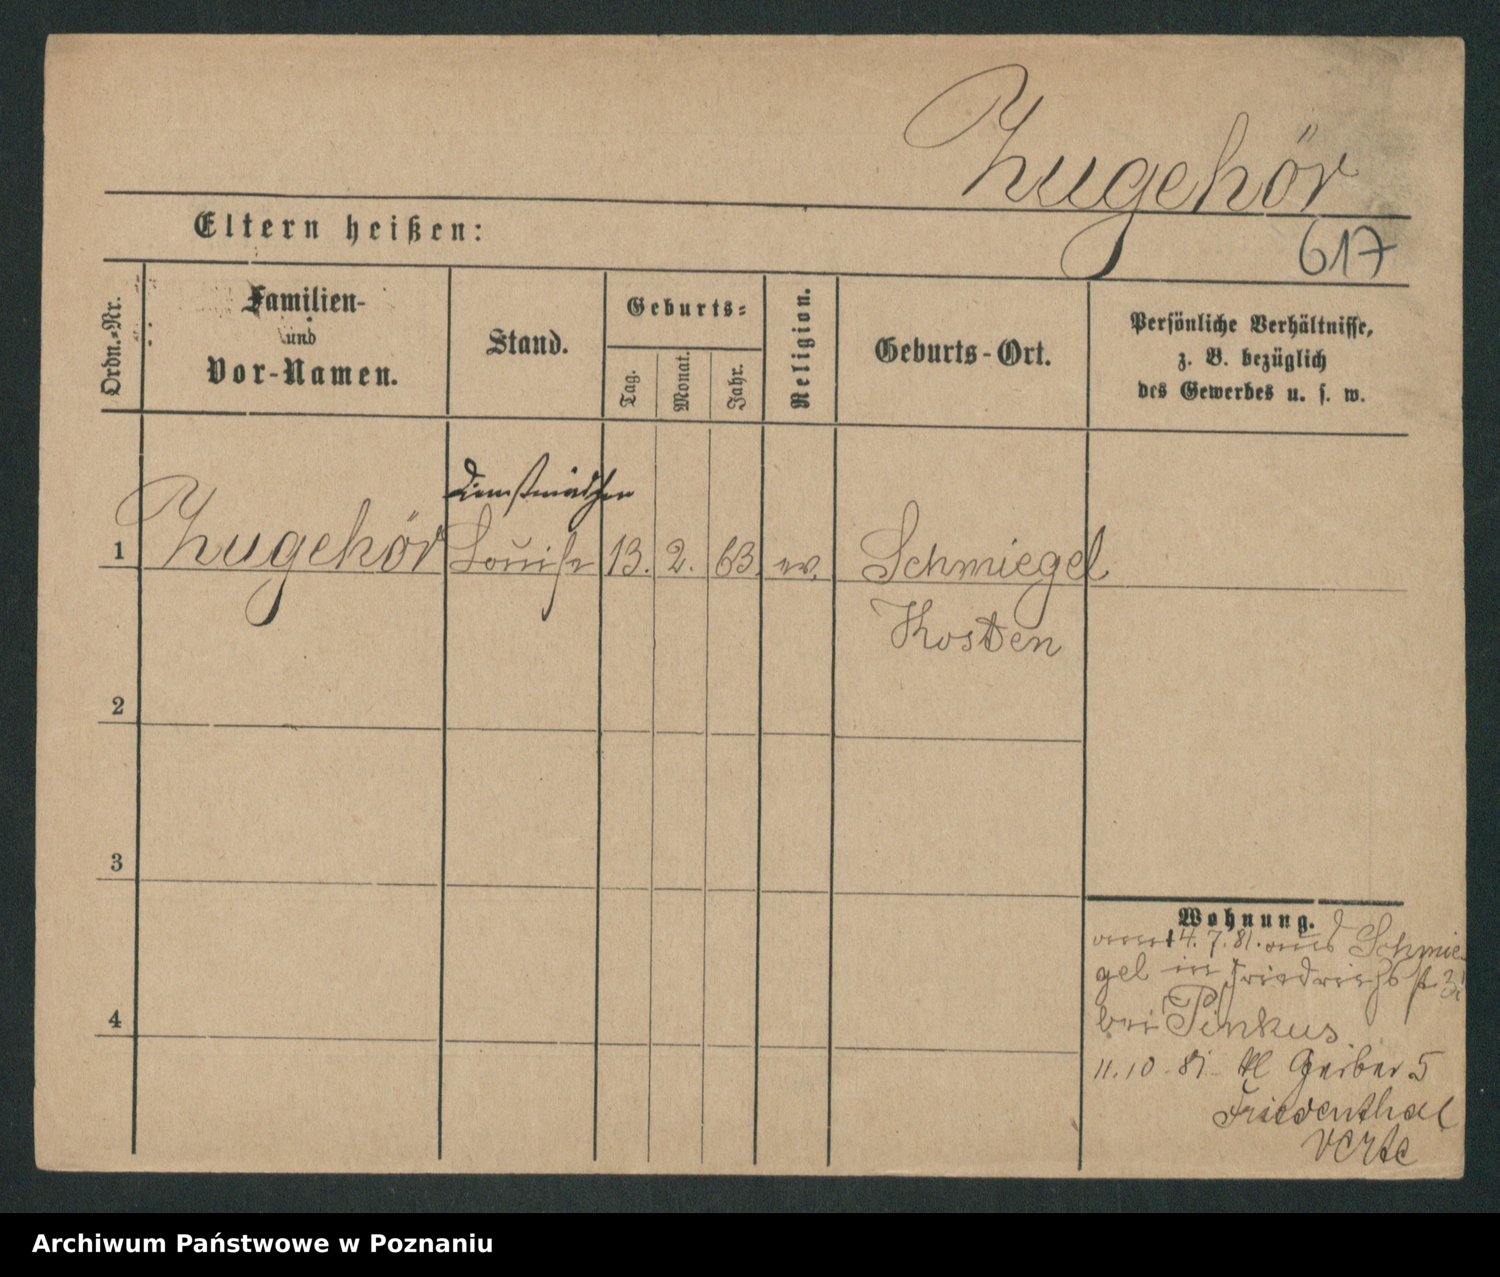 Zugehör
Eltern heißen:
617
Ordn.-Nr.
Familien-
und
Vor-Namen.
Stand.
Geburts-
Tag.
Monat.
Jahr.
Religion.
Geburts-Ort.
Persönliche Verhältnisse,
z. B. bezüglich
des Gewerbes u. s. w.
Dienstmädchen
1 Zugehör Louise 13. 2. 63. ev. Schmiegel
Kosten
2
3
4
Wohnung.
4. 7. 81. aus Schmie-
gel in Friedrichstr
bei Pinkus
11.10.81. Kl Gerber 5
Friedenthal
verte
Archiwum Państwowe w Poznaniu